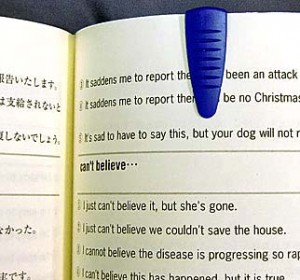 報告いたします。
は支給されないと
復しないでしょう。
なかった。
実です。
① It saddens me to report the been an attack
② It saddens me to report ther be no Christmas
③ It's sad to have to say this, but your dog will not r
can't believe…
① I just can't believe it, but she's gone.
② I just can't believe we couldn't save the house.
③ I cannot believe the disease is progressing so rap
can't believe this has happened, but it is true.